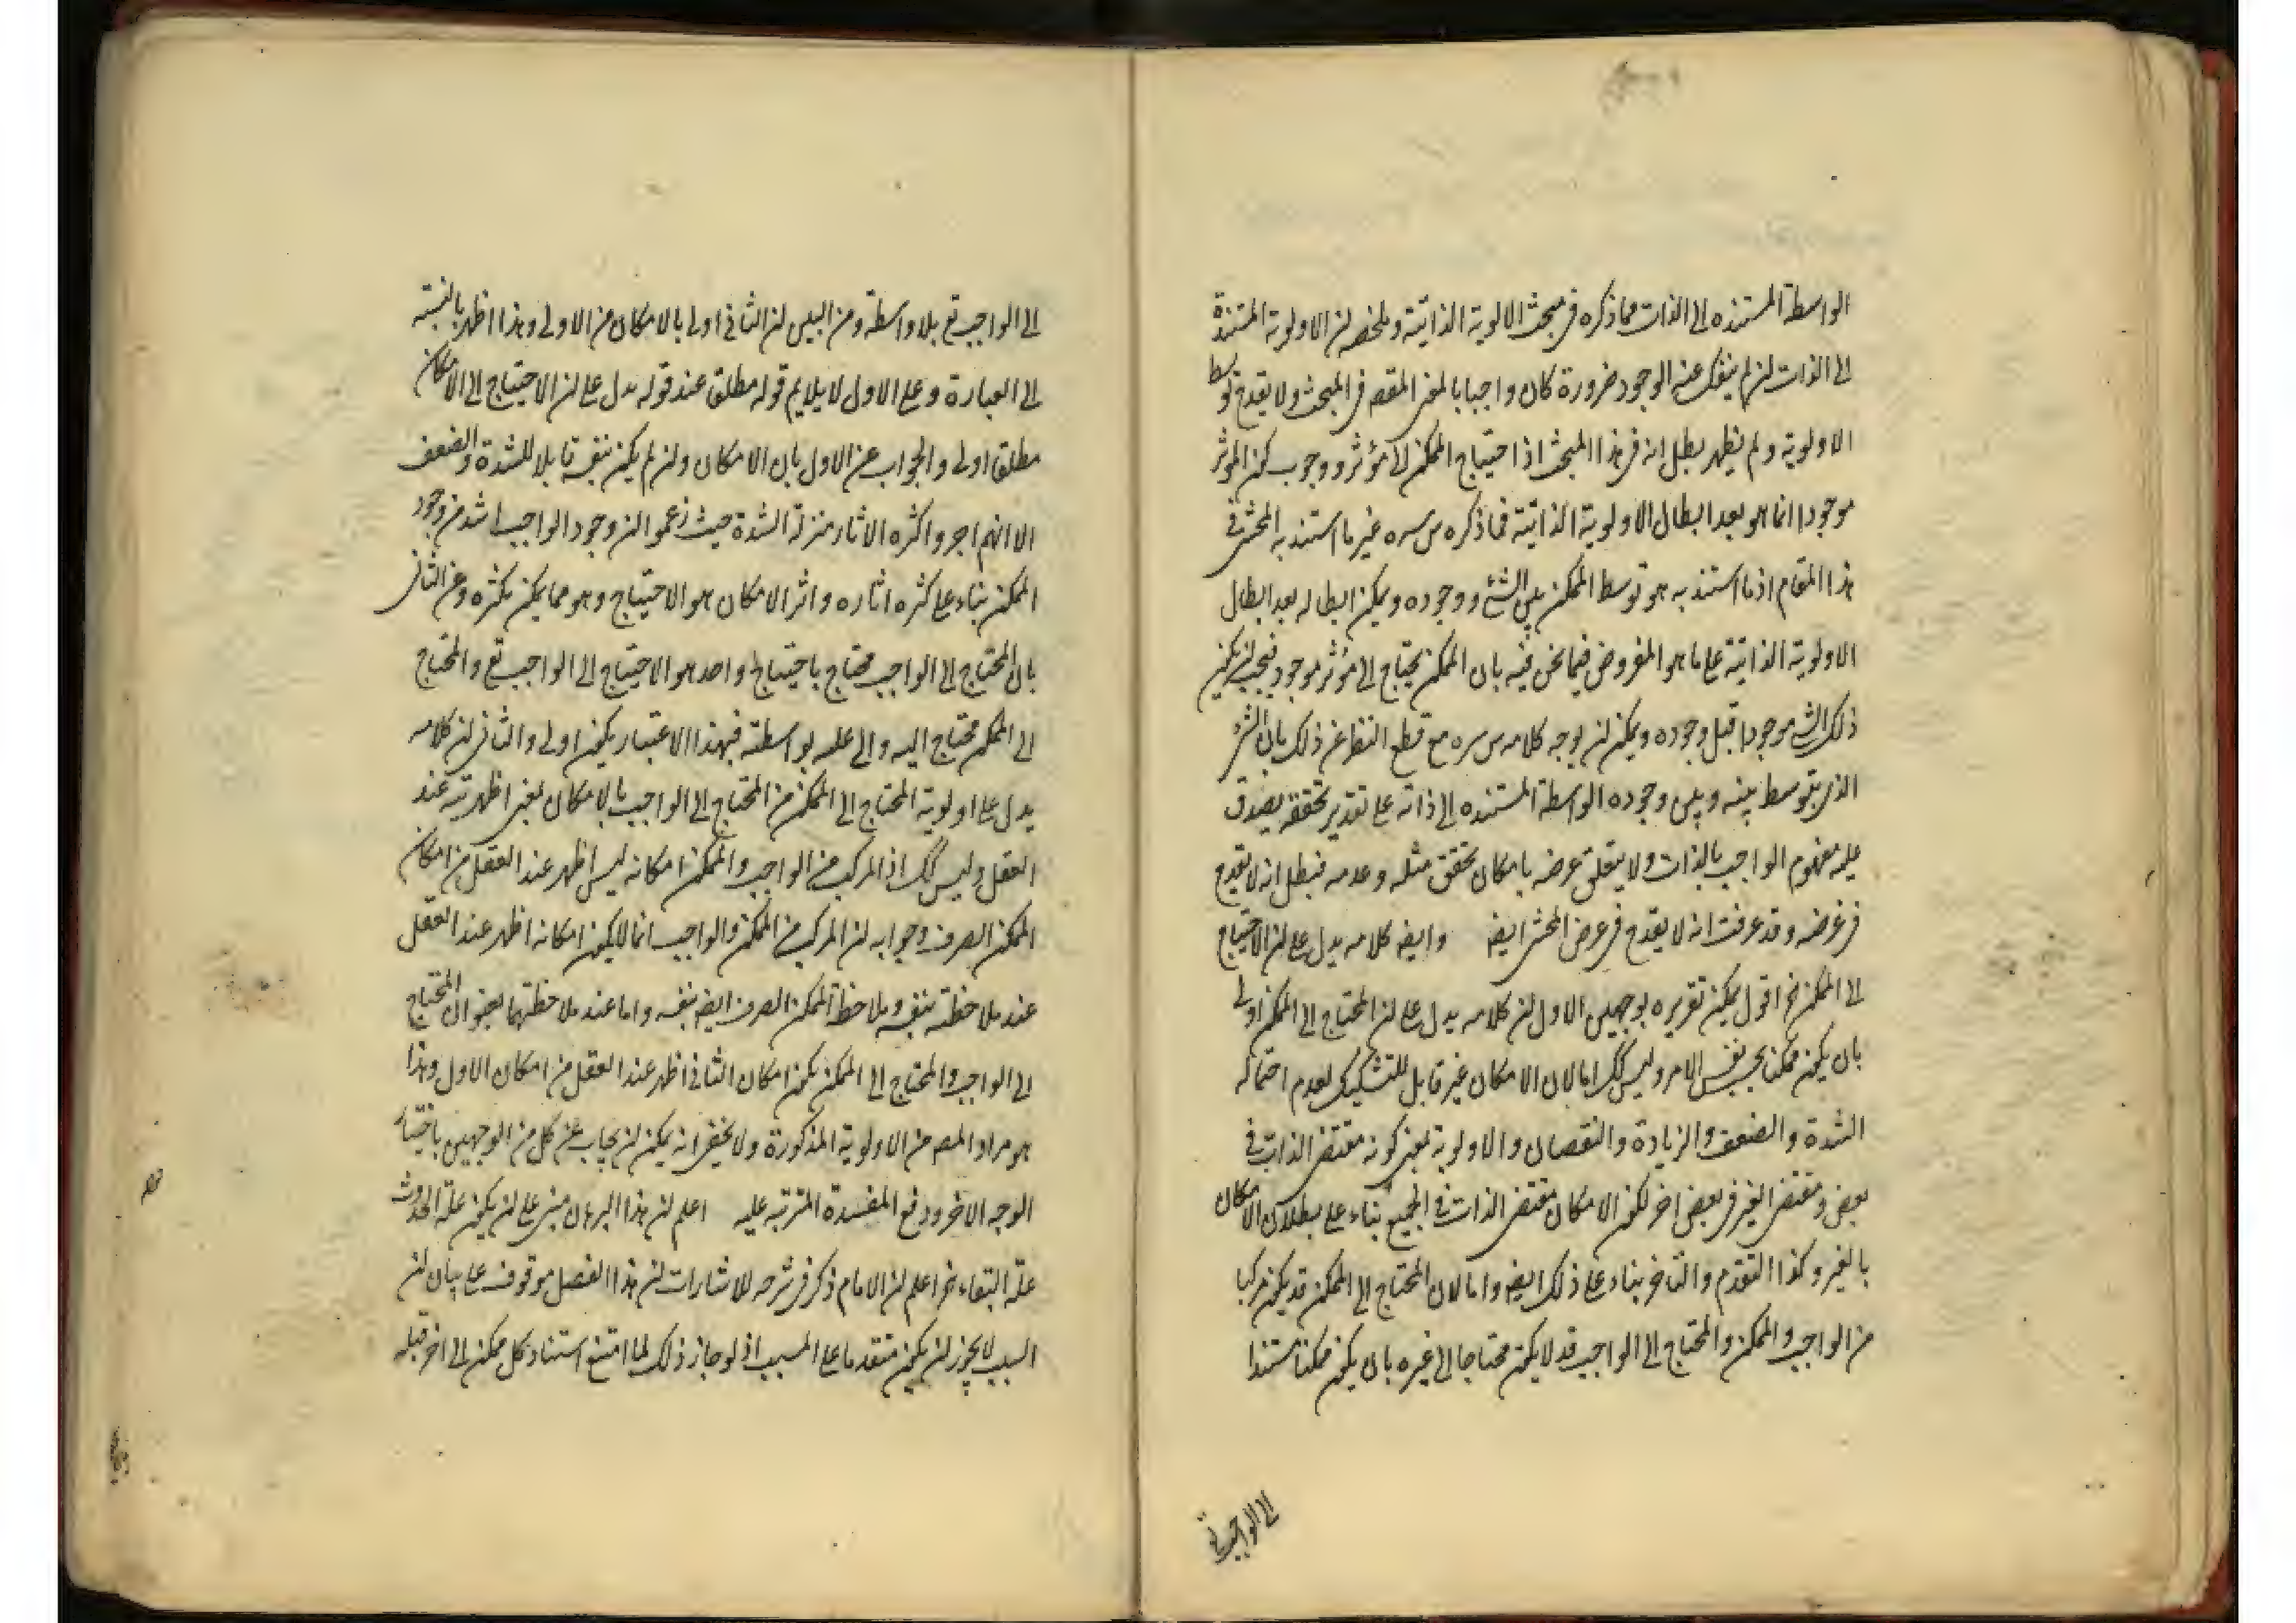 الواسطة المستنده الى الذات مما ذكره فى مبحث الالوية الذاتية وملخصه لن الاولوية المستندة
الى الذات لن لم ينفك عنه الوجود ضرورة كان واجبا بالمعنى المقصم فى المبحث ولا يقدح توسط
الاولوية ولم يظهر بطل انه فى هذا المبحث اذا احتياج الممكن الى مؤثر ووجوب كون المؤثر
موجودا انما هو بعد ابطال الاولوية الذاتية فما ذكره س سره غير ما استند به المحشى فى
هذا المقام اذ ما استند به هو توسط الممكن بين الشئ ووجوده ويمكن ابطاله بعد ابطال
الاولوية الذاتية على ما هو المفروض فيما نحن فيه بان الممكن يحتاج الى مؤثر موجود فيجب لن يكون
ذلك الشئ موجودا قبل وجوده ويمكن لن يوجه كلامه س سره مع قطع النظر عن ذلك بان الشئ
الذى يتوسط بينه وبين وجوده الواسطة المستنده الى ذاته على تقدير تحققه يصدق
عليه مفهوم الواجب بالذات ولا يتعلق غرضه بامكان تحقق مثله وعدمه فبطل انه لا يقدح
فى غرضه وقد عرفت انه لا يقدح فى غرض المحشى ايضه وايضه كلامه يدل على لن الاحتياج
الى الممكن الخ اقول يمكن تقريره بوجهين الاول لن كلامه يدل على لن المحتاج الى الممكن اولى
بان يكون ممكنا بحسب نفس الامر وليس كك اما لان الامكان غير قابل للتشكيك لعدم احتماله
الشدة والضعف والزيادة والنقصان والاولوية بمعنى كونه مقتضى الذات فى
بعض ومقتضى الغير فى بعض اخر لكون الامكان مقتضى الذات فى الجميع بناء على بطلان الامكان
بالغير وكذا التقدم والتاخر بناء على ذلك ايضه واما لان المحتاج الى الممكن قد يكون مركبا
من الواجب والممكن والمحتاج الى الواجب قد لا يكون محتاجا الى غيره بان يكون ممكنا مستندا
الى الواجب تع
الى الواجب تع بلا واسطة ومن البين لن الثانى اولى بالامكان من الاولى وهذا اظهر بالنسبة
الى العبارة وعلى الاول لا يلايم قوله مطلق عند قوله يدل على لن الاحتياج الى الامكان
مطلقا اولى والجواب عن الاول بان الامكان ولن لم يكن بنفسه قابلا للشدة والضعف
الا انهم اجروا كثره الاثار منزلة الشدة حيث زعموا لن وجود الواجب اشد من وجود
الممكن بناء على كثره اثاره واثر الامكان هو الاحتياج وهو مما يمكن تكثره وعن الثانى
بان المحتاج الى الواجب محتاج باحتياج واحد هو الاحتياج الى الواجب تع والمحتاج
الى الممكن محتاج اليه والى علته بواسطته فبهذا الاعتبار يكون اولى والثانى لن كلامه
يدل على اولوية المحتاج الى الممكن من المحتاج الى الواجب بالامكان بمعنى اظهريته عند
العقل وليس كك اذ المركب من الواجب والممكن امكانه ليس اظهر عند العقل من امكان
الممكن الصرف وجوابه لن المركب من الممكن والواجب انما لا يكون امكانه اظهر عند العقل
عند ملاحظته بنفسه وملاحظة الممكن الصرف ايضه بنفسه واما عند ملاحظتهما بعنوان المحتاج
الى الواجب والمحتاج الى الممكن يكون امكان الثانى اظهر عند العقل من امكان الاول وهذا
هو مراد المصه من الاولوية المذكورة ولا يخفى انه يمكن لن يجاب عن كل من الوجهين باختيار
الوجه الاخر ودفع المفسدة المترتبه عليه اعلم لن هذا البرهان مبنى على لن يكون علة الحدوث
علة البقاء الخ اعلم لن الامام ذكر فى شرحه للاشارات لن هذا الفصل موقوف على بيان لن
السبب لا يجوز لن يكون متقدما على المسبب اذ لو جاز ذلك لما امتنع استناد كل ممكن الى اخر قبله